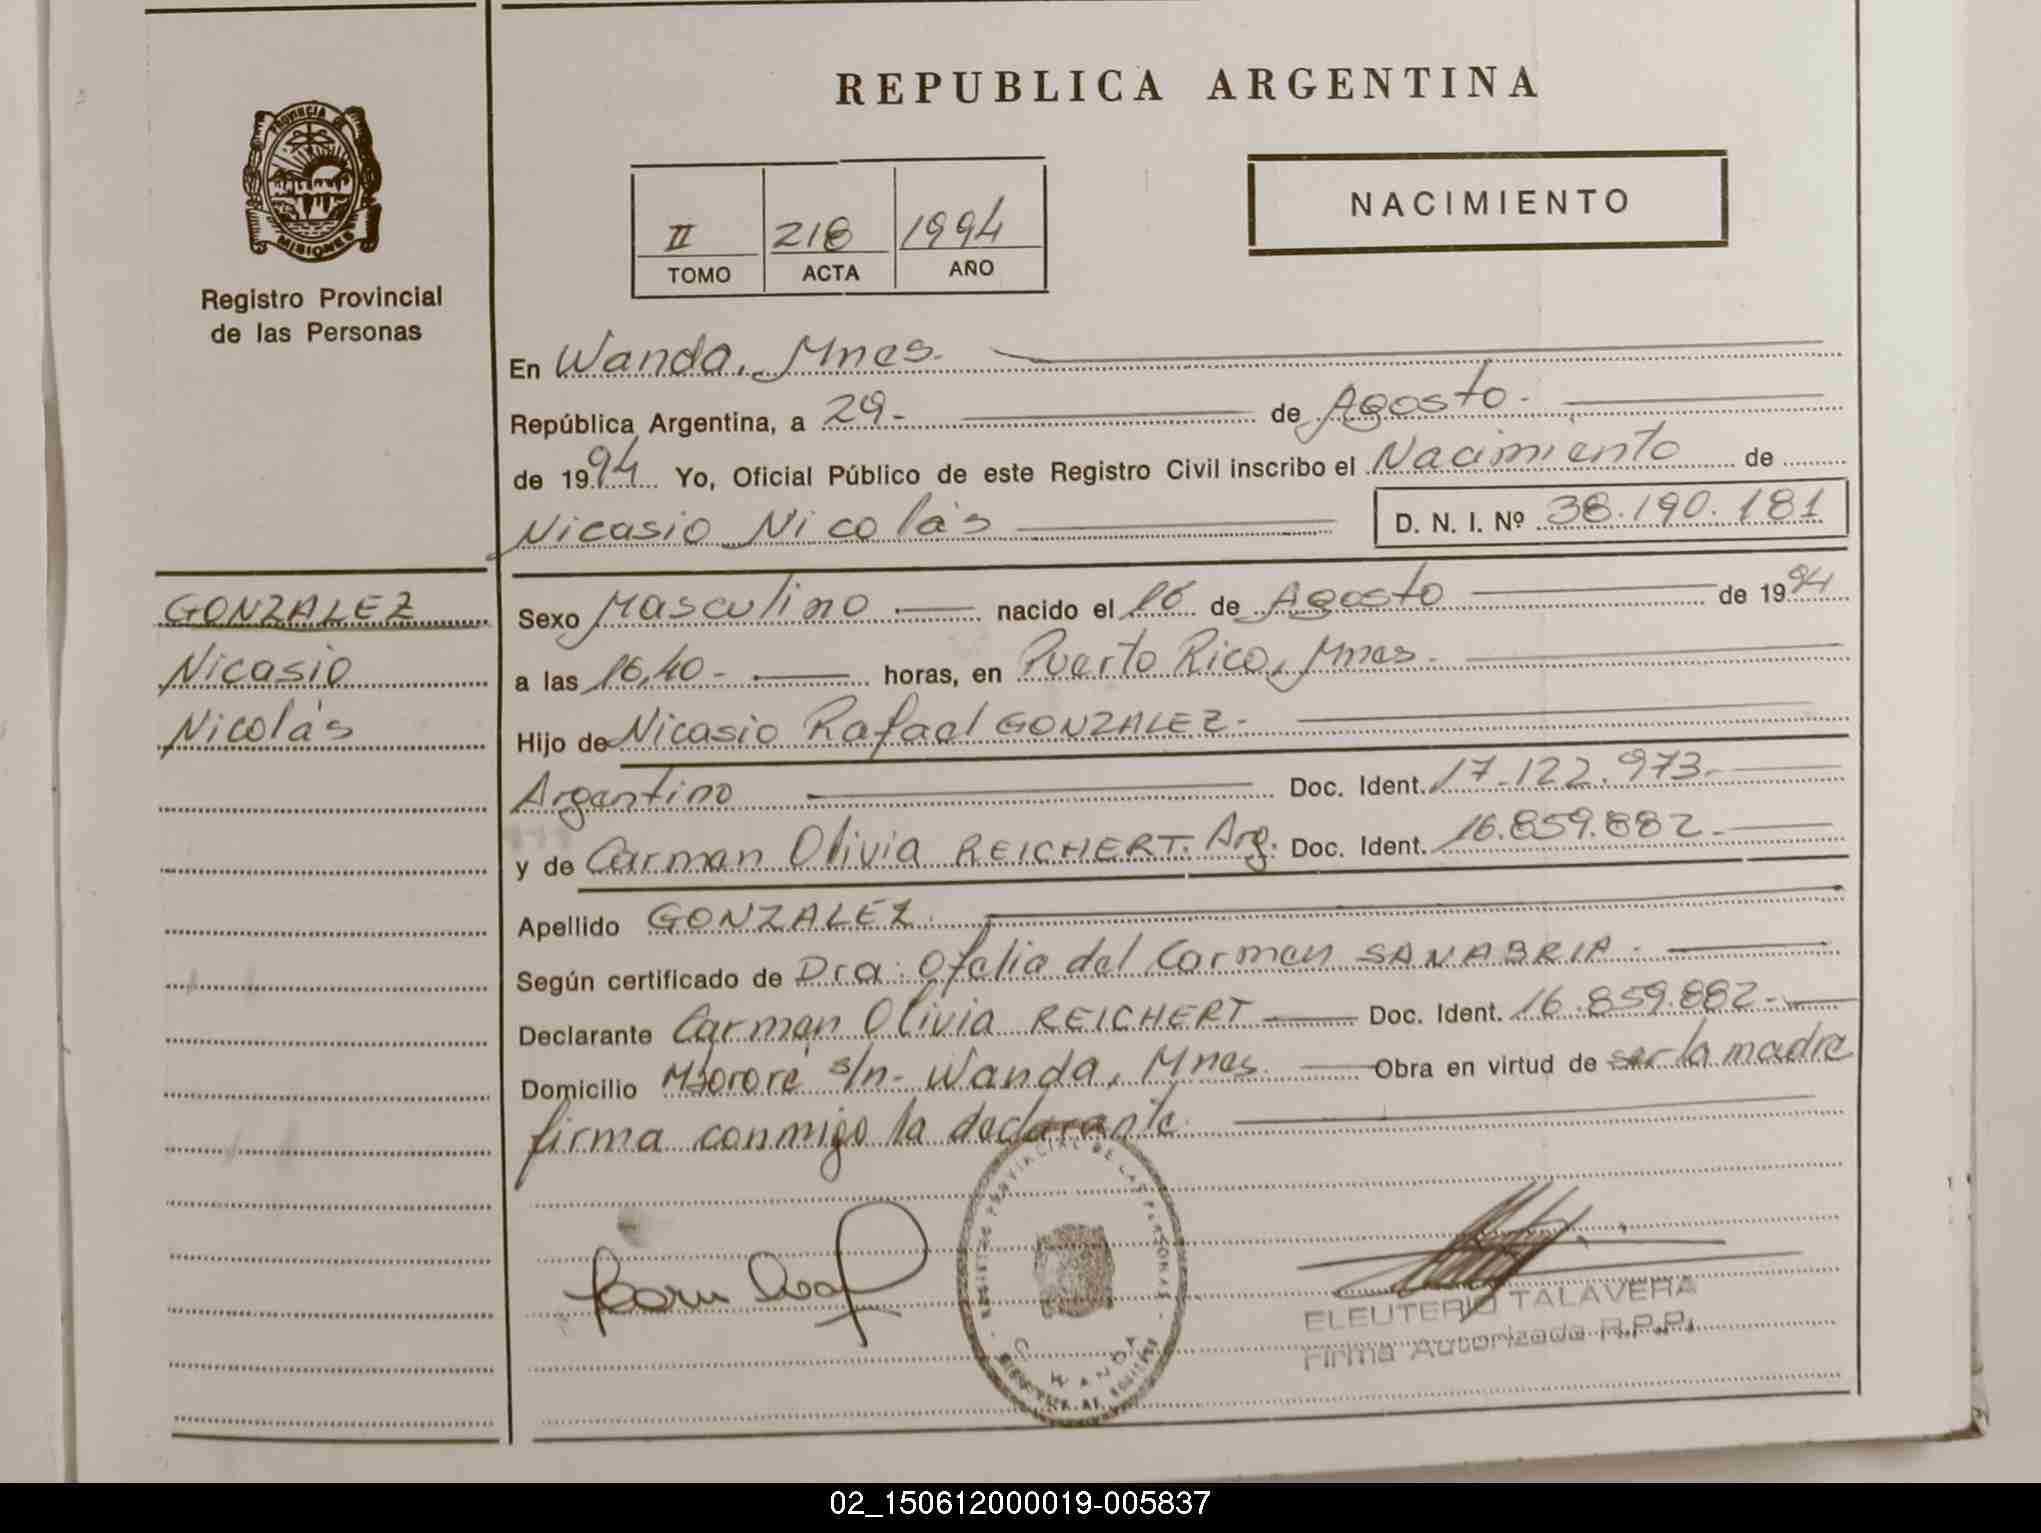 REPUBLICA ARGENTINA
PROVINCIA DE
MISIONES
Registro Provincial
de las Personas
NACIMIENTO
II 218 1994
TOMO ACTA AÑO
En Wanda, Mnes.
República Argentina, a 29- de Agosto.
de 1994 Yo, Oficial Público de este Registro Civil inscribo el Nacimiento de
Nicasio Nicolás D. N. I. Nº 38.190.181
GONZALEZ
Nicasio
Nicolás
Sexo Masculino nacido el 16 de Agosto de 1994
a las 16,40- horas, en Puerto Rico, Mnes.
Hijo de Nicasio Rafael GONZALEZ-
Argentino Doc. Ident. 17.122.973-
y de Carmen Olivia REICHERT. Arg. Doc. Ident. 16.859.882-
Apellido GONZALEZ.
Según certificado de Dra: Ofelia del Carmen SANABRIA.
Declarante Carmen Olivia REICHERT Doc. Ident. 16.859.882-
Domicilio Mbororé s/n- Wanda, Mnes. Obra en virtud de ser la madre
firma conmigo la declarante.
REGISTRO PROVINCIAL DE LAS PERSONAS
WANDA
ELEUTERIO TALAVERA
Firma Autorizada R.P.P.
02_150612000019-005837